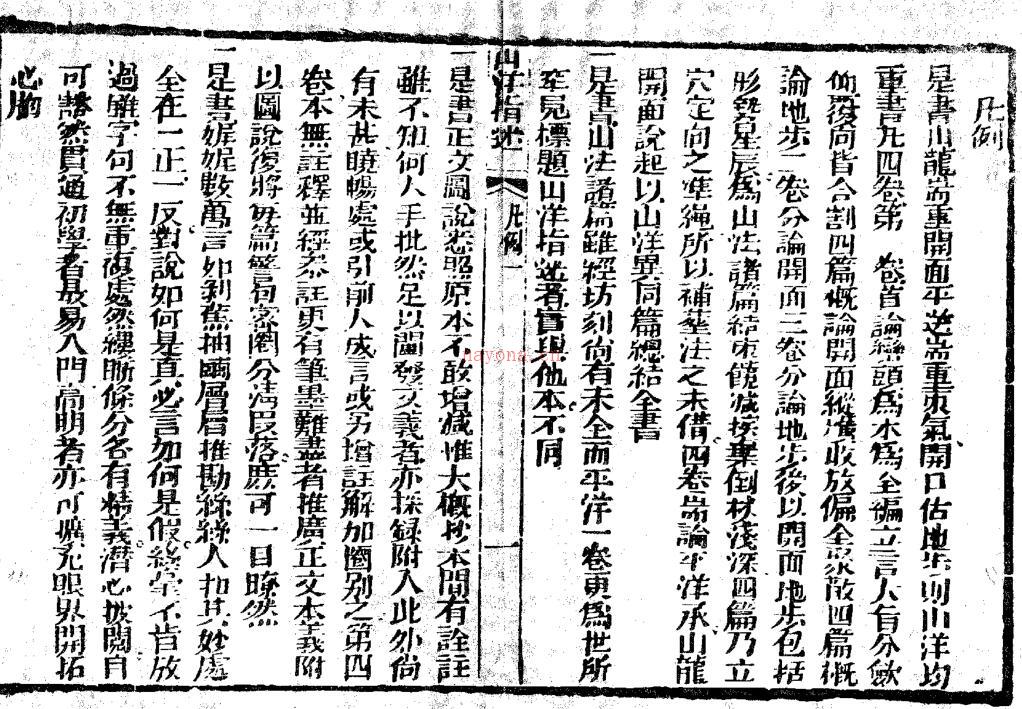 凡例
是書山龍耑重開面平洋耑重束氣開口估地步則山洋均
重書凡四卷第 卷首論巒頭爲本爲全編立言大旨分歛
仰覆向背合割四篇槪論開面縱橫收放偏全聚散四篇槪
論地步二卷分論開面三卷分論地步後以開面地步包括
形勢星辰爲山法諸篇結束饒減挨棄倒杖淺深四篇乃立
穴定向之準繩所以補葬法之未備四卷耑論平洋承山龍
開面說起以山洋異同篇總結全書
一是書山法諸篇雖經坊刻尙有未全而平洋一卷更爲世所
罕見標題山洋指迷者實與他本不同
山洋指迷 凡例 一
一是書正文圖說悉照原本不敢增減惟大槪抄本間有詮註
雖不知何人手批然足以闡發文義者亦採録附入此外尙
有未甚曉暢處或引前人成言或另增註解加圈别之第四
卷本無註釋並經添註更有筆墨難盡者推廣正文本義附
以圖說後將每篇警句密圈分淸段落庶可一目瞭然
一是書娓娓數萬言如剝蕉抽繭層層推勘絲絲入扣其妙處
全在一正一反對說如何是眞必言如何是假絲毫不肯放
過雖字句不無重複處然縷晰條分各有精義潛心披閱自
可豁然貫通初學者最易入門高明者亦可擴充眼界開拓
心胸
nayona.cn